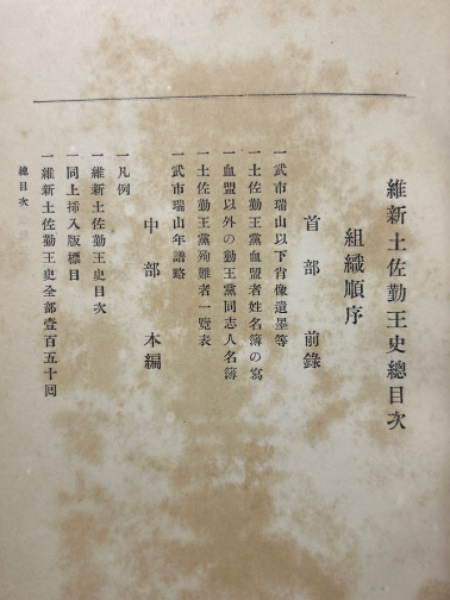 維新土佐勤王史總目次
組織順序
首部 前錄
一武市瑞山以下肖像遺墨等
一土佐勤王黨血盟者姓名簿の寫
一血盟以外の勤王黨同志人名簿
一土佐勤王黨殉難者一覽表
一武市瑞山年譜略
中部 本編
一凡例
一維新土佐勤王史目次
一同上挿入版標目
一維新土佐勤王史全部壹百五十回
總目次